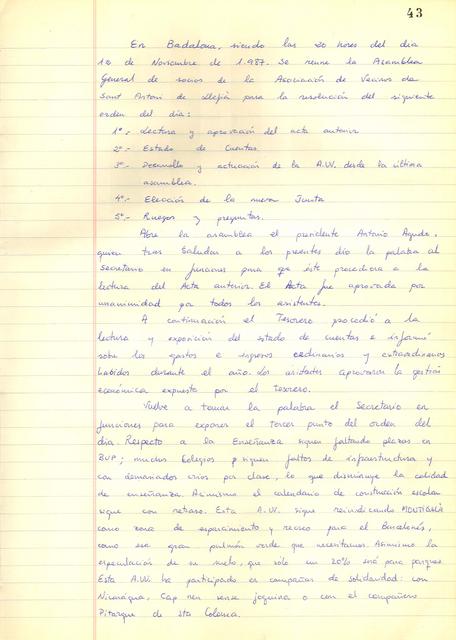 43
En Badalona, siendo las 20 hores del día
de Noviembre de 1.987. Se reune la Asamblea
General de socios de la Asociación de Vecinos de
Sant Antoni de Llefià para la resolución del siguiente
orden del día:
1º.- Lectura y aprovación del acta anterior
2º.- Estado de Cuentas.
3º.- Desarrollo y actuación de la A.VV. desde la última
asamblea.
4º.- Elección de la nueva Junta
5º.- Ruegos y preguntas.
Abre la asamblea el presidente Antonio
quien tras saludar a los presentes dio la palabra al
Secretario en funciones para que éste procediera a la
lectura del Acta anterior. El Acta fue aprovada por
unanimidad por todos los asistentes.
A continuación el Tesorero procedió a la
lectura y exposición del estado de cuentas e informó
sobre los gastos e ingresos ordinarios y extraordinarios
habidos durante el año. Los asistentes aprovaron la gestión
económica expuesta por el tesorero.
Vuelve a tomar la palabra el Secretario en
funciones para exponer el tercer punto del orden del
día. Respecto a la Enseñanza siguen faltando plazas en
BUP; muchos Colegios siguen faltos de infraestructura y
con demasiados crios por clase, lo que disminuye la calidad
de enseñanza. Asimismo el calendario de construcción escolar
sigue con retraso. Esta A.VV. sigue reivindicando MONTIGALÀ
como zona de esparcimiento y recreo para el Barcelonés,
como ese gran pulmón verde que necesitamos. Asimismo la
especulación de su suelo, que sólo un 20% será para parques.
Esta A.VV. ha participado en campañas de solidaridad: con
Nicaragua, Cap nen sense joguina o con el compañero
Pitarque de Sta Coloma.